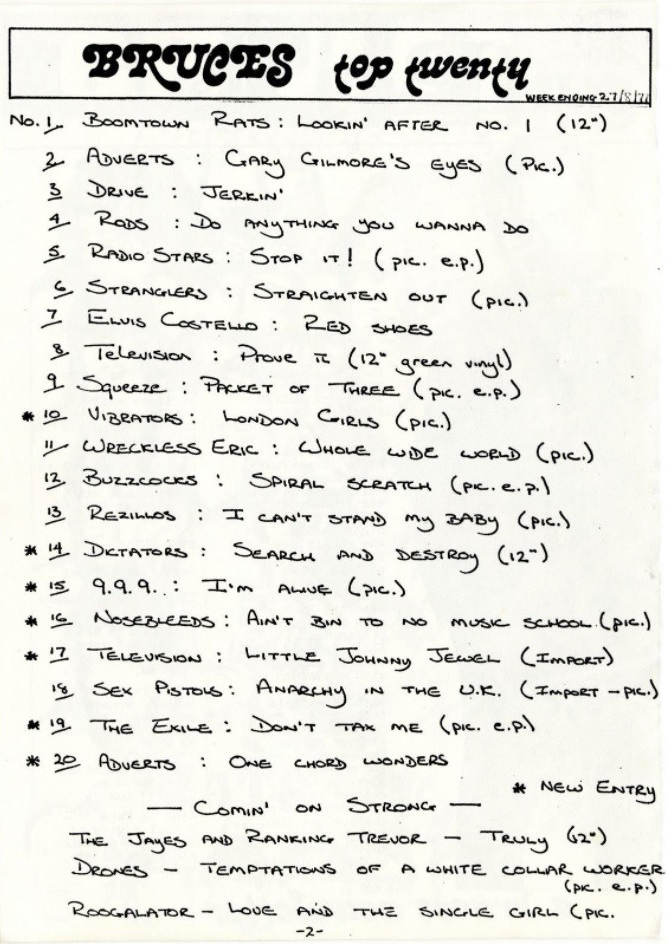 BRUCES top twenty
WEEK ENDING 27/8/7
No. 1 BOOMTOWN RATS : LOOKIN' AFTER NO. 1 (12")
2 ADVERTS : GARY GILMORE'S EYES (PIC.)
3 DRIVE : JERKIN'
4 RODS : DO ANYTHING YOU WANNA DO
5 RADIO STARS : STOP IT! (PIC. e.p.)
6 STRANGLERS : STRAIGHTEN OUT (PIC.)
7 ELVIS COSTELLO : RED SHOES
8 TELEVISION : PROVE IT (12" green vinyl)
9 SQUEEZE : PACKET OF THREE (PIC. e.p.)
* 10 VIBRATORS : LONDON GIRLS (PIC.)
11 WRECKLESS ERIC : WHOLE WIDE WORLD (PIC.)
12 BUZZCOCKS : SPIRAL SCRATCH (PIC. e.p.)
13 REZILLOS : I CAN'T STAND MY BABY (PIC.)
* 14 DICTATORS : SEARCH AND DESTROY (12")
* 15 9.9.9. : I'M ALIVE (PIC.)
* 16 NOSEBLEEDS : AIN'T BIN TO NO MUSIC SCHOOL. (PIC.)
* 17 TELEVISION : LITTLE JOHNNY JEWEL (IMPORT)
18 SEX PISTOLS : ANARCHY IN THE U.K. (IMPORT - PIC.)
* 19 THE EXILE : DON'T TAX ME (PIC. e.p.)
* 20 ADVERTS : ONE CHORD WONDERS
* NEW ENTRY
— COMIN' ON STRONG —
THE JAYES AND RANKING TREVOR - TRULY (12")
DRONES - TEMPTATIONS OF A WHITE COLLAR WORKER
(PIC. e.p.)
ROOGALATOR - LOVE AND THE SINGLE GIRL (PIC.
-2-